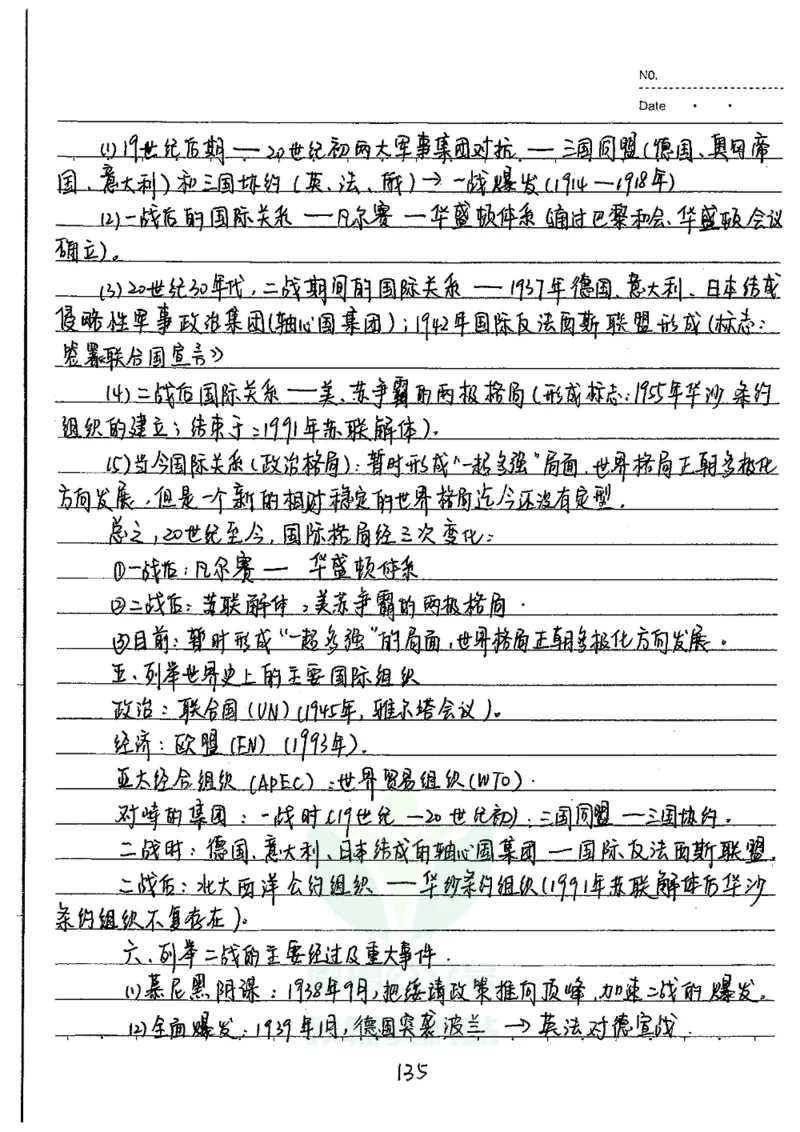 NO.
Date · ·
(1) 19世纪后期 — 20世纪初两大军事集团对抗 — 三国同盟(德国、奥匈帝
国、意大利)和三国协约(英、法、俄)→一战爆发(1914—1918年)
(2)一战后的国际关系 — 凡尔赛 — 华盛顿体系(通过巴黎和会、华盛顿会议
确立)。
(3)20世纪30年代,二战期间的国际关系 — 1937年德国、意大利、日本结成
侵略性军事政治集团(轴心国集团);1942年国际反法西斯联盟形成(标志:
签署联合国宣言》
(4)二战后国际关系 — 美、苏争霸的两极格局(形成标志:1955年华沙条约
组织的建立;结束于:1991年苏联解体)。
(5)当今国际关系(政治格局):暂时形成"一超多强"局面,世界格局正朝多极化
方向发展,但是一个新的相对稳定的世界格局迄今还没有定型。
总之,20世纪至今,国际格局经三次变化:
①一战后:凡尔赛 — 华盛顿体系
②二战后:苏联解体;美苏争霸的两极格局·
③目前:暂时形成"一超多强"的局面,世界格局正朝多极化方向发展。
五、列举世界史上的主要国际组织
政治:联合国(UN)(1945年,雅尔塔会议)。
经济:欧盟(EN)(1993年)。
亚太经合组织(APEC);世界贸易组织(WTO)·
对峙的集团:一战时(19世纪—20世纪初):三国同盟—三国协约。
二战时:德国、意大利、日本结成的轴心国集团—国际反法西斯联盟。
二战后:北大西洋公约组织 — 华沙条约组织(1991年苏联解体后华沙
条约组织不复存在)。
六、列举二战的主要经过及重大事件·
(1)慕尼黑阴谋:1938年9月,把绥靖政策推向顶峰,加速二战的爆发。
(2)全面爆发:1939年1月,德国突袭波兰→英法对德宣战·
135